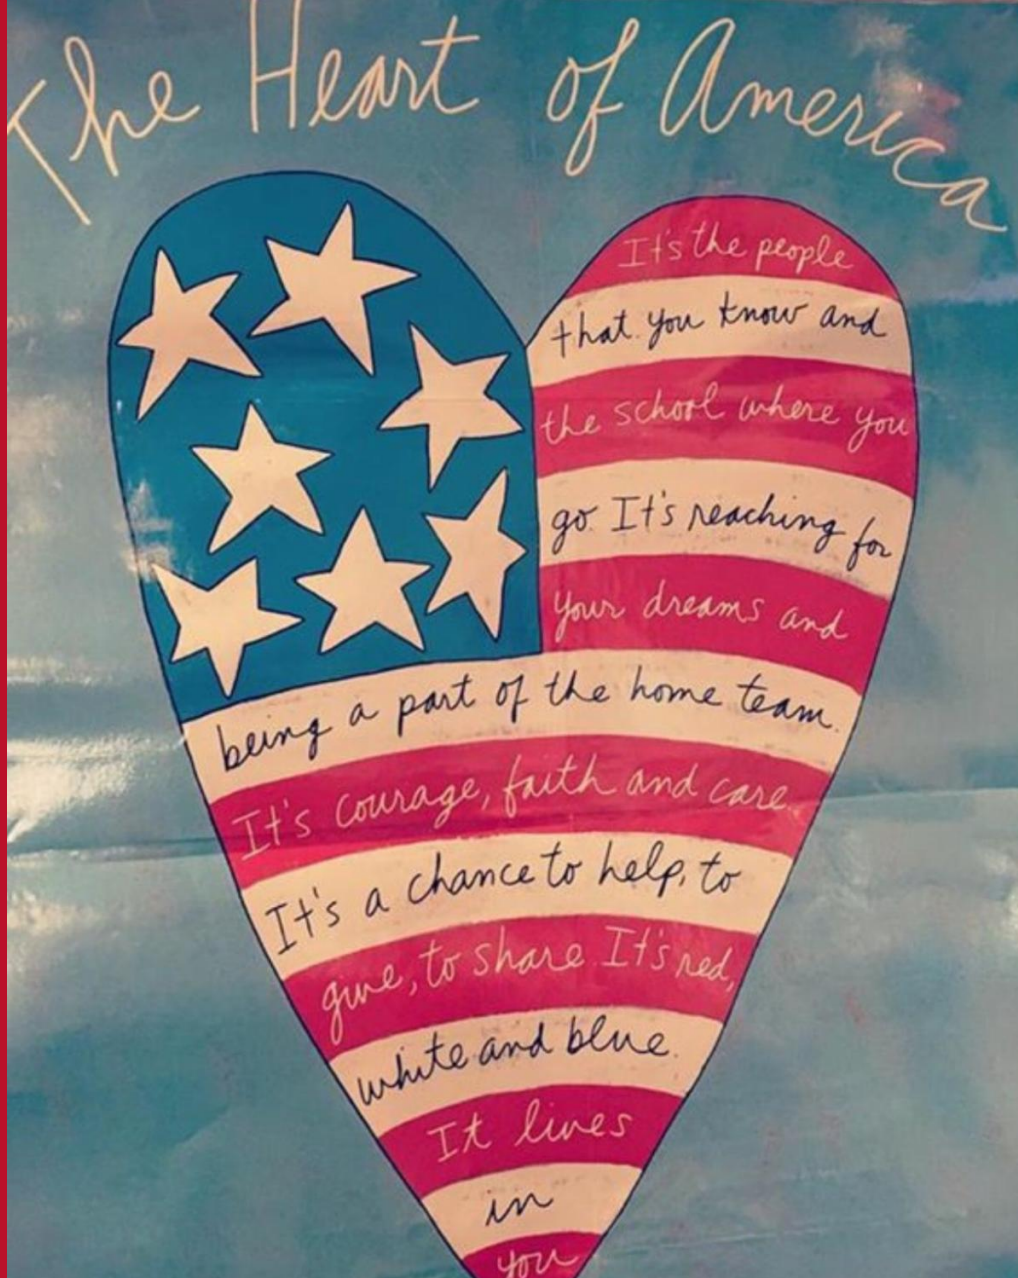 The Heart of America
It's the people
that you know and
the school where you
go. It's reaching for
your dreams and
being a part of the home team.
It's courage, faith and care.
It's a chance to help, to
give, to share It's red,
white and blue.
It lives
in
you